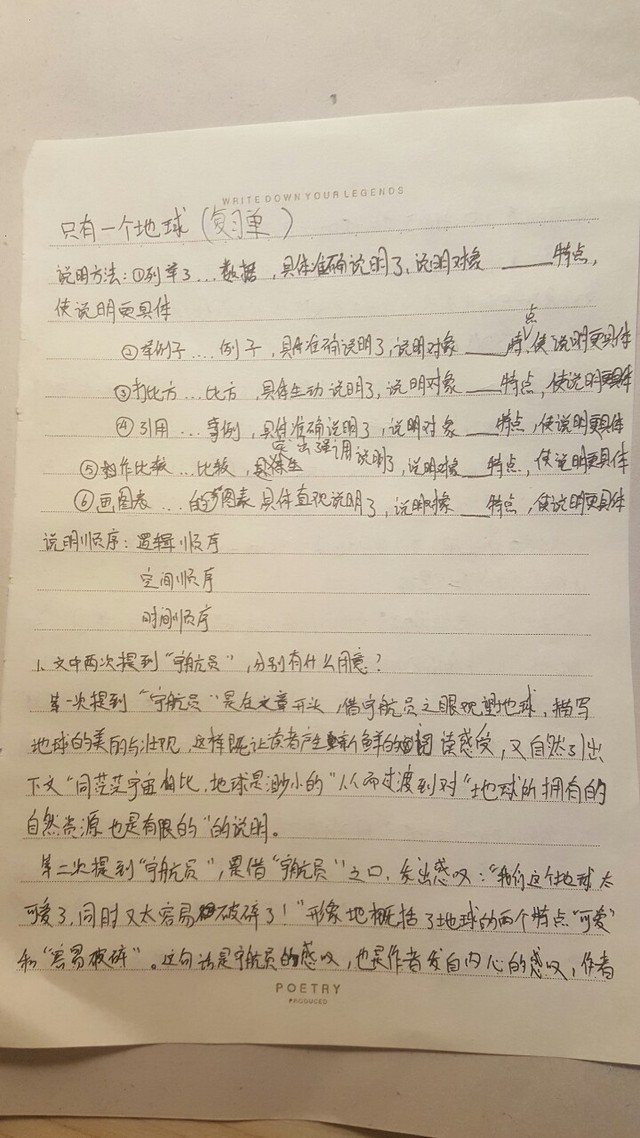 WRITE DOWN YOUR LEGENDS
只有一个地球（复习单）
说明方法：①列举了…数据，具体准确说明了，说明对象____特点，
使说明更具体
②举例子…例子，具体准确说明了，说明对象____特点，使说明更具体
③打比方…比方，具体生动说明了，说明对象____特点，使说明更具体
④引用…事例，具体准确说明了，说明对象____特点，使说明更具体
⑤作比较…比较，突出强调说明了，说明对象____特点，使说明更具体
⑥画图表…的图表具体直观说明了，说明对象____特点，使说明更具体
说明顺序：逻辑顺序
空间顺序
时间顺序
1、文中两次提到“宇航员”，分别有什么用意？
第一次提到“宇航员”是在文章开头，借宇航员之眼观望地球，描写
地球的美丽与壮观，这样既让读者产生新鲜的阅读感受，又自然引出
下文“同茫茫宇宙相比，地球是渺小的”从而过渡到对“地球所拥有的
自然资源也是有限的”的说明。
第二次提到“宇航员”，是借“宇航员”之口，发出感叹：“我们这个地球太
可爱了，同时又太容易破碎了！”形象地概括了地球的两个特点“可爱”
和“容易破碎”。这句话是宇航员的感叹，也是作者发自内心的感叹，作者
POETRY
PRODUCED